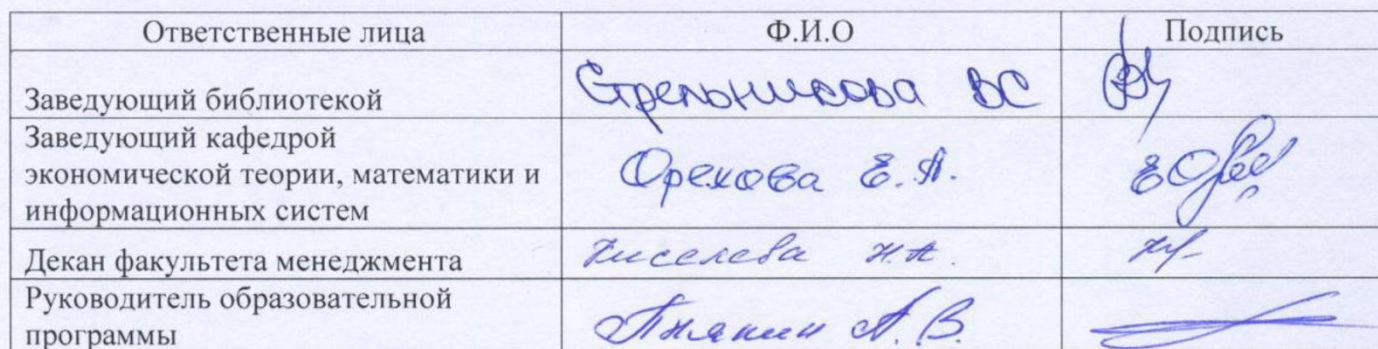 Ответственные лица Ф.И.О Подпись
Заведующий библиотекой Стрельникова ВС
Заведующий кафедрой
экономической теории, математики и Орехова Е.А.
информационных систем
Декан факультета менеджмента Киселева Н.А.
Руководитель образовательной
программы А.В.